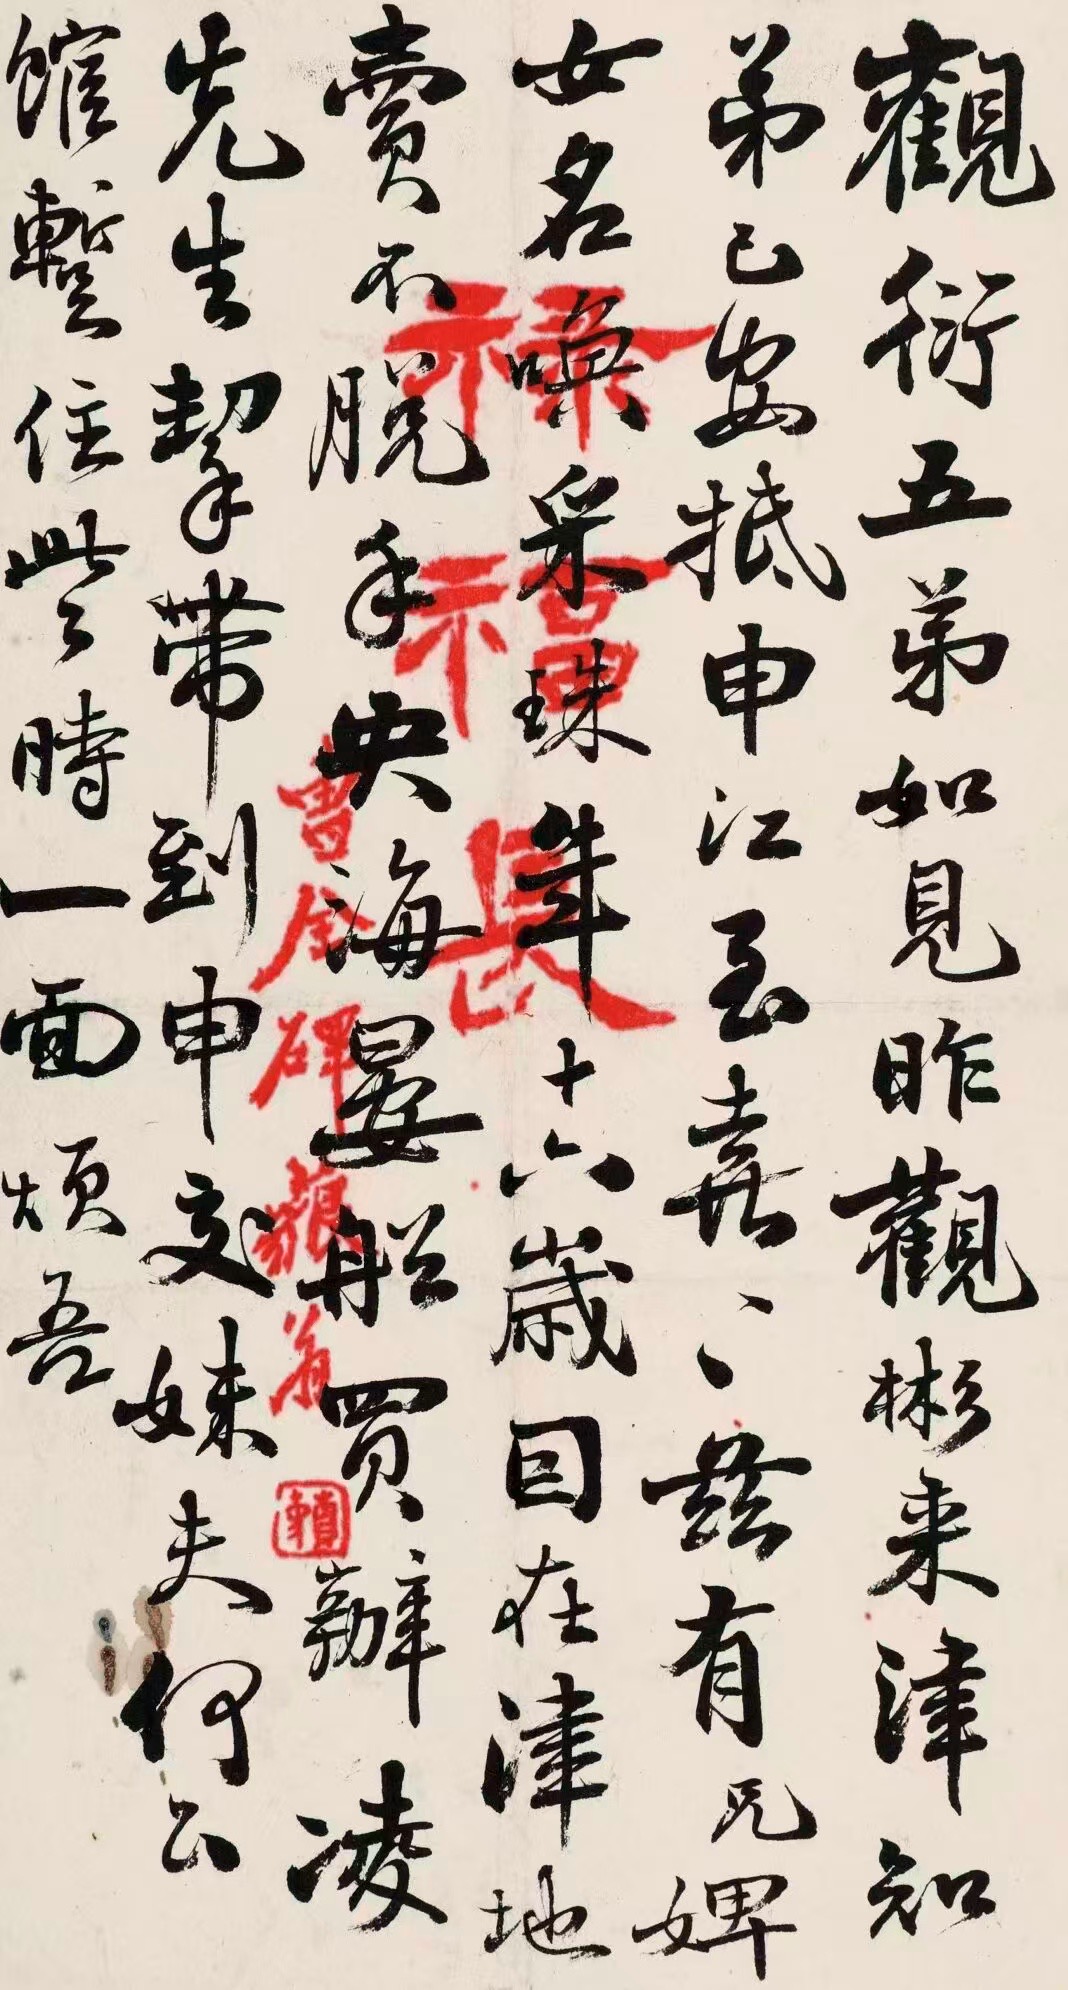 觀衍五弟如見昨觀彬来津知
弟已安抵申江至喜〻兹有兄婢
女名喚采珠年十六歲因在津地
賣不脱手央海晏船買辦凌
先生挈帶到申交妹夫何公
館暫住些時一面煩吾
祿
福
長